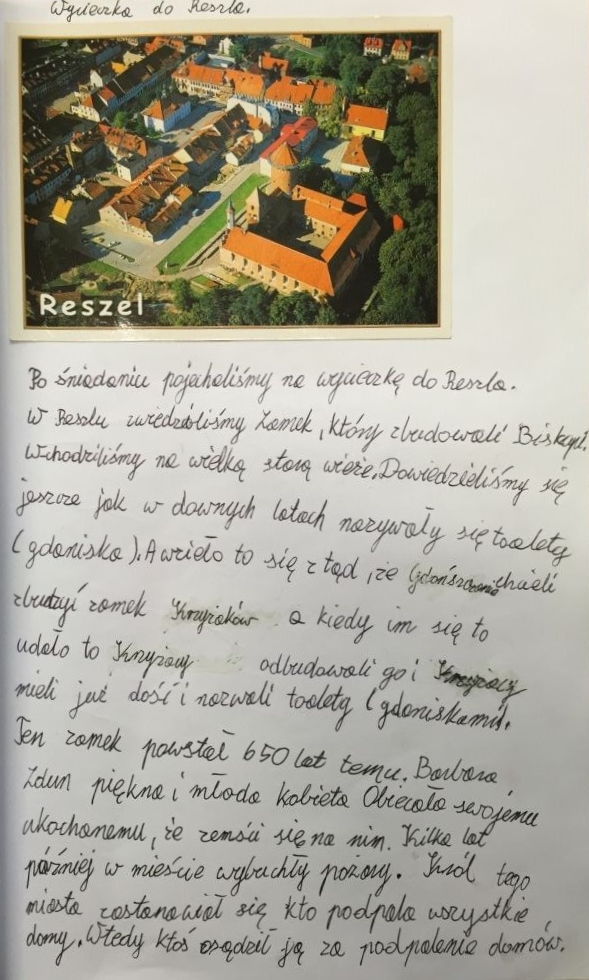 Wycieczka do Reszla.
Reszel
Po śniadaniu pojechaliśmy na wycieczkę do Reszla.
W Reszlu zwiedziliśmy Zamek, który zbudowali Biskupi.
Wchodziliśmy na wielką starą wieże. Dowiedzieliśmy się
jeszcze jak w dawnych latach nazywały się toalety
(gdaniska). A wzieło to się z tąd, że Gdańszczanie chcieli
zburzyć zamek Krzyżaków a kiedy im się to
udało to Krzyżacy odbudowali go i Krzyżacy
mieli już dość i nazwali toalety (gdaniskami).
Ten zamek powstał 650 lat temu. Barbara
Zdun piękna i młoda kobieta Obiecała swojemu
ukochanemu, że zemści się na nim. Kilka lat
później w mieście wybuchły pożary. Król tego
miasta zastanawiał się kto podpala wszystkie
domy. Wtedy ktoś osądził ją za podpalenie domów.